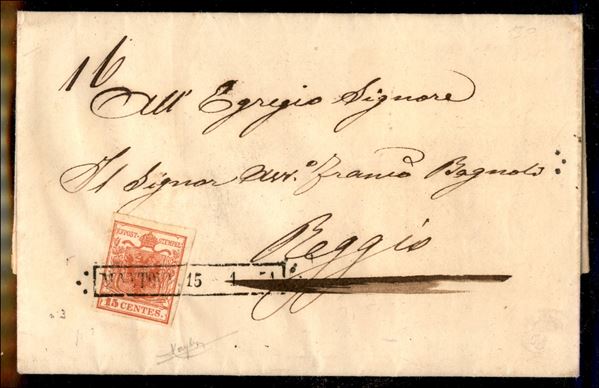 16
All' Egregio Signore
Il Signor Avv.o Franco Bagnoli
Reggio
KKPOST-STEMPEL
MANTOVA 15
15 CENTES.